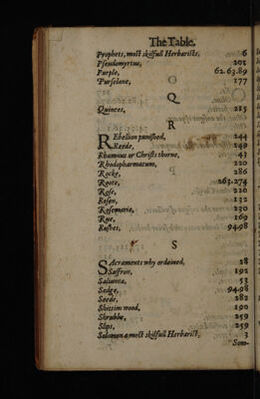 The Table.
Prophets, most skilfull Herbarists, 6
Pseudomyrtus, 201
Purple, 62.63.89
Purselane, 177
Q
Quinces, 215
R
REbellion punished, 144
Reede, 149
Rhamnus or Christs thorne, 43
Rhodopharmacum, 220
Rocke, 286
Roote, 263.274
Rose, 216
Rosen, 132
Rosemarie, 230
Rue, 169
Rushes, 94.98
S
SAcraments why ordained, 28
Saffron, 192
Saliunca, 53
Sedge, 94.98
Seede, 282
Shittim wood, 190
Shrubbe, 259
Slips, 259
Salomon a most skilfull Herbarist, 3
Som-